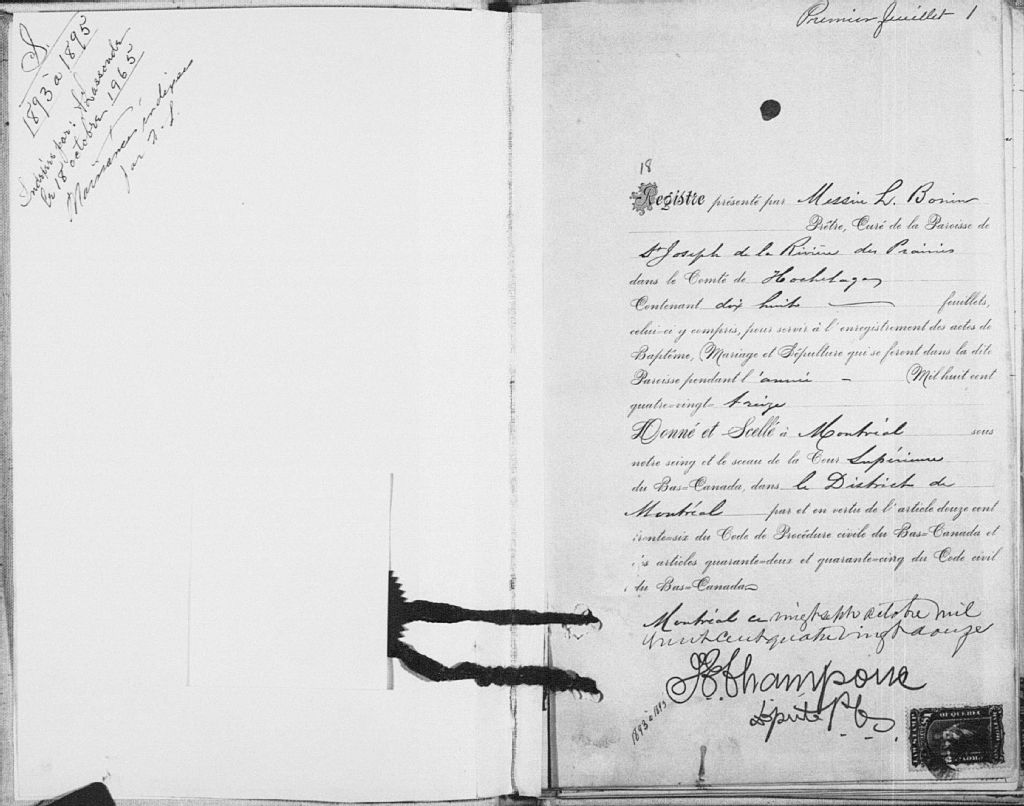 S.
1893 à 1895
Indexées par: Lassonde
le 18 octobre 1965
Naissances indexées
par
Premier feuillet 1
18
Registre présenté par Messire L. Bonin
Prêtre, Curé de la Paroisse de
St Joseph de la Rivière des Prairies
dans le Comté de Hochelaga
Contenant dix huit feuillets,
celui-ci y compris, pour servir à l'enregistrement des actes de
Baptême, Mariage et Sépulture qui se feront dans la dite
Paroisse pendant l'année - Mil huit cent
quatre-vingt- treize
Donné et Scellé à Montréal sous
notre seing et le sceau de la Cour Supérieure
du Bas=Canada, dans le District de
Montréal par et en vertu de l'article douze cent
trente=six du Code de Procédure civile du Bas=Canada et
les articles quarante=deux et quarante=cinq du Code civil
du Bas=Canada
Montréal ce vingt sept octobre mil
huit cent quatre vingt douze
Champoux
Député P.C.S.
1893 à 1895
OF QUEBEC